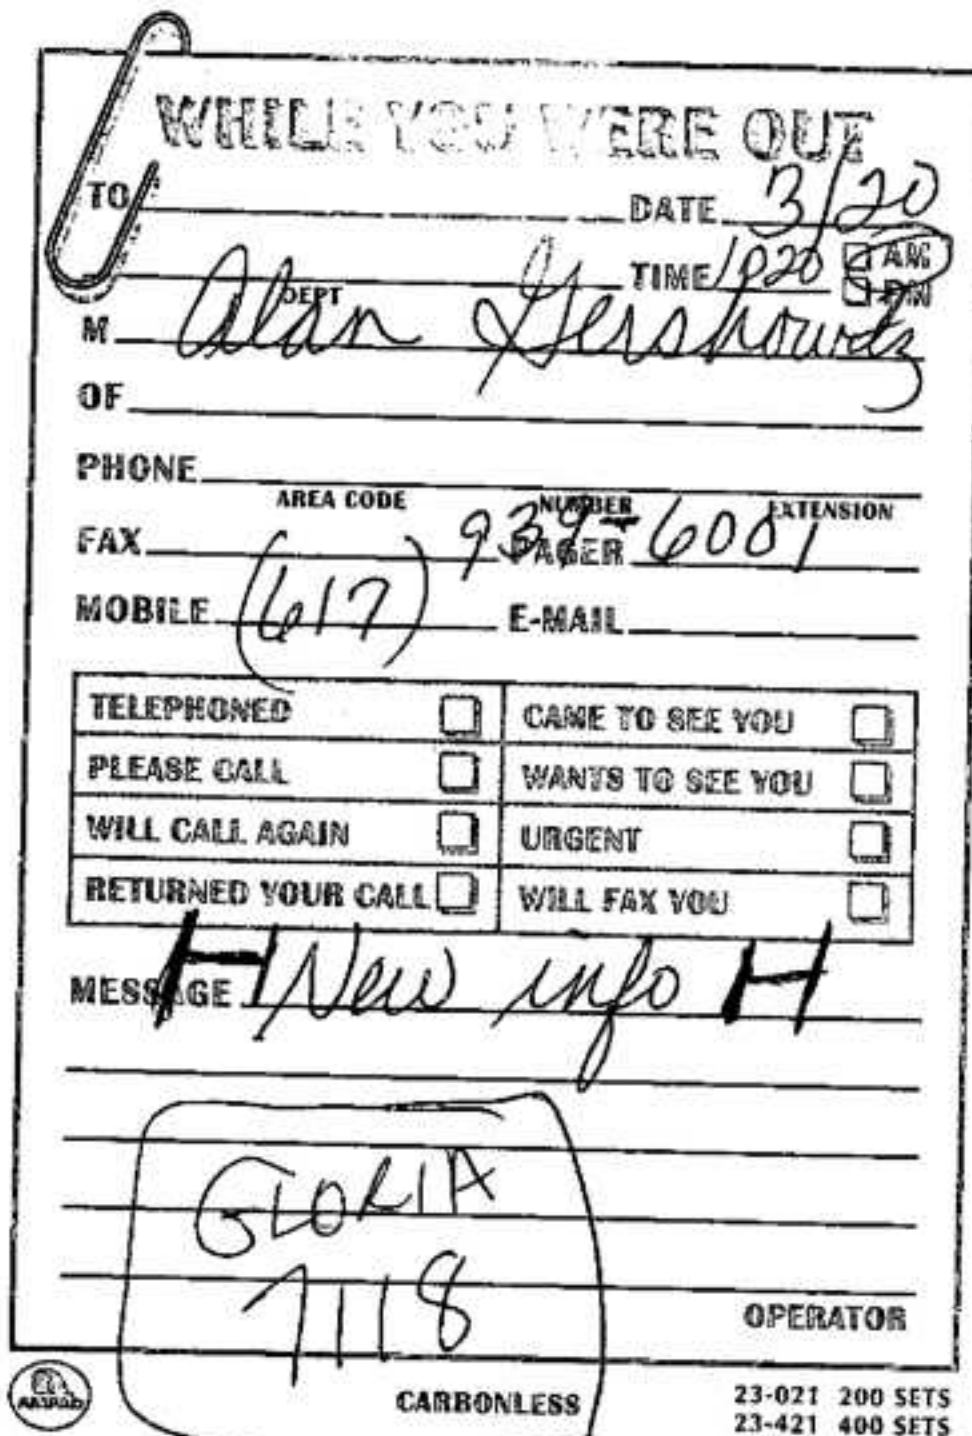 WHILE YOU WERE OUT
TO DATE 3/20
TIME 1020 AM PM
DEPT
M Alan Gershowitz
OF
PHONE
AREA CODE NUMBER EXTENSION
939-6001
FAX PAGER
MOBILE (617) E-MAIL
TELEPHONED CAME TO SEE YOU
PLEASE CALL WANTS TO SEE YOU
WILL CALL AGAIN URGENT
RETURNED YOUR CALL WILL FAX YOU
MESSAGE New info
GLORIA
7118
OPERATOR
CARBONLESS 23-021 200 SETS
23-421 400 SETS